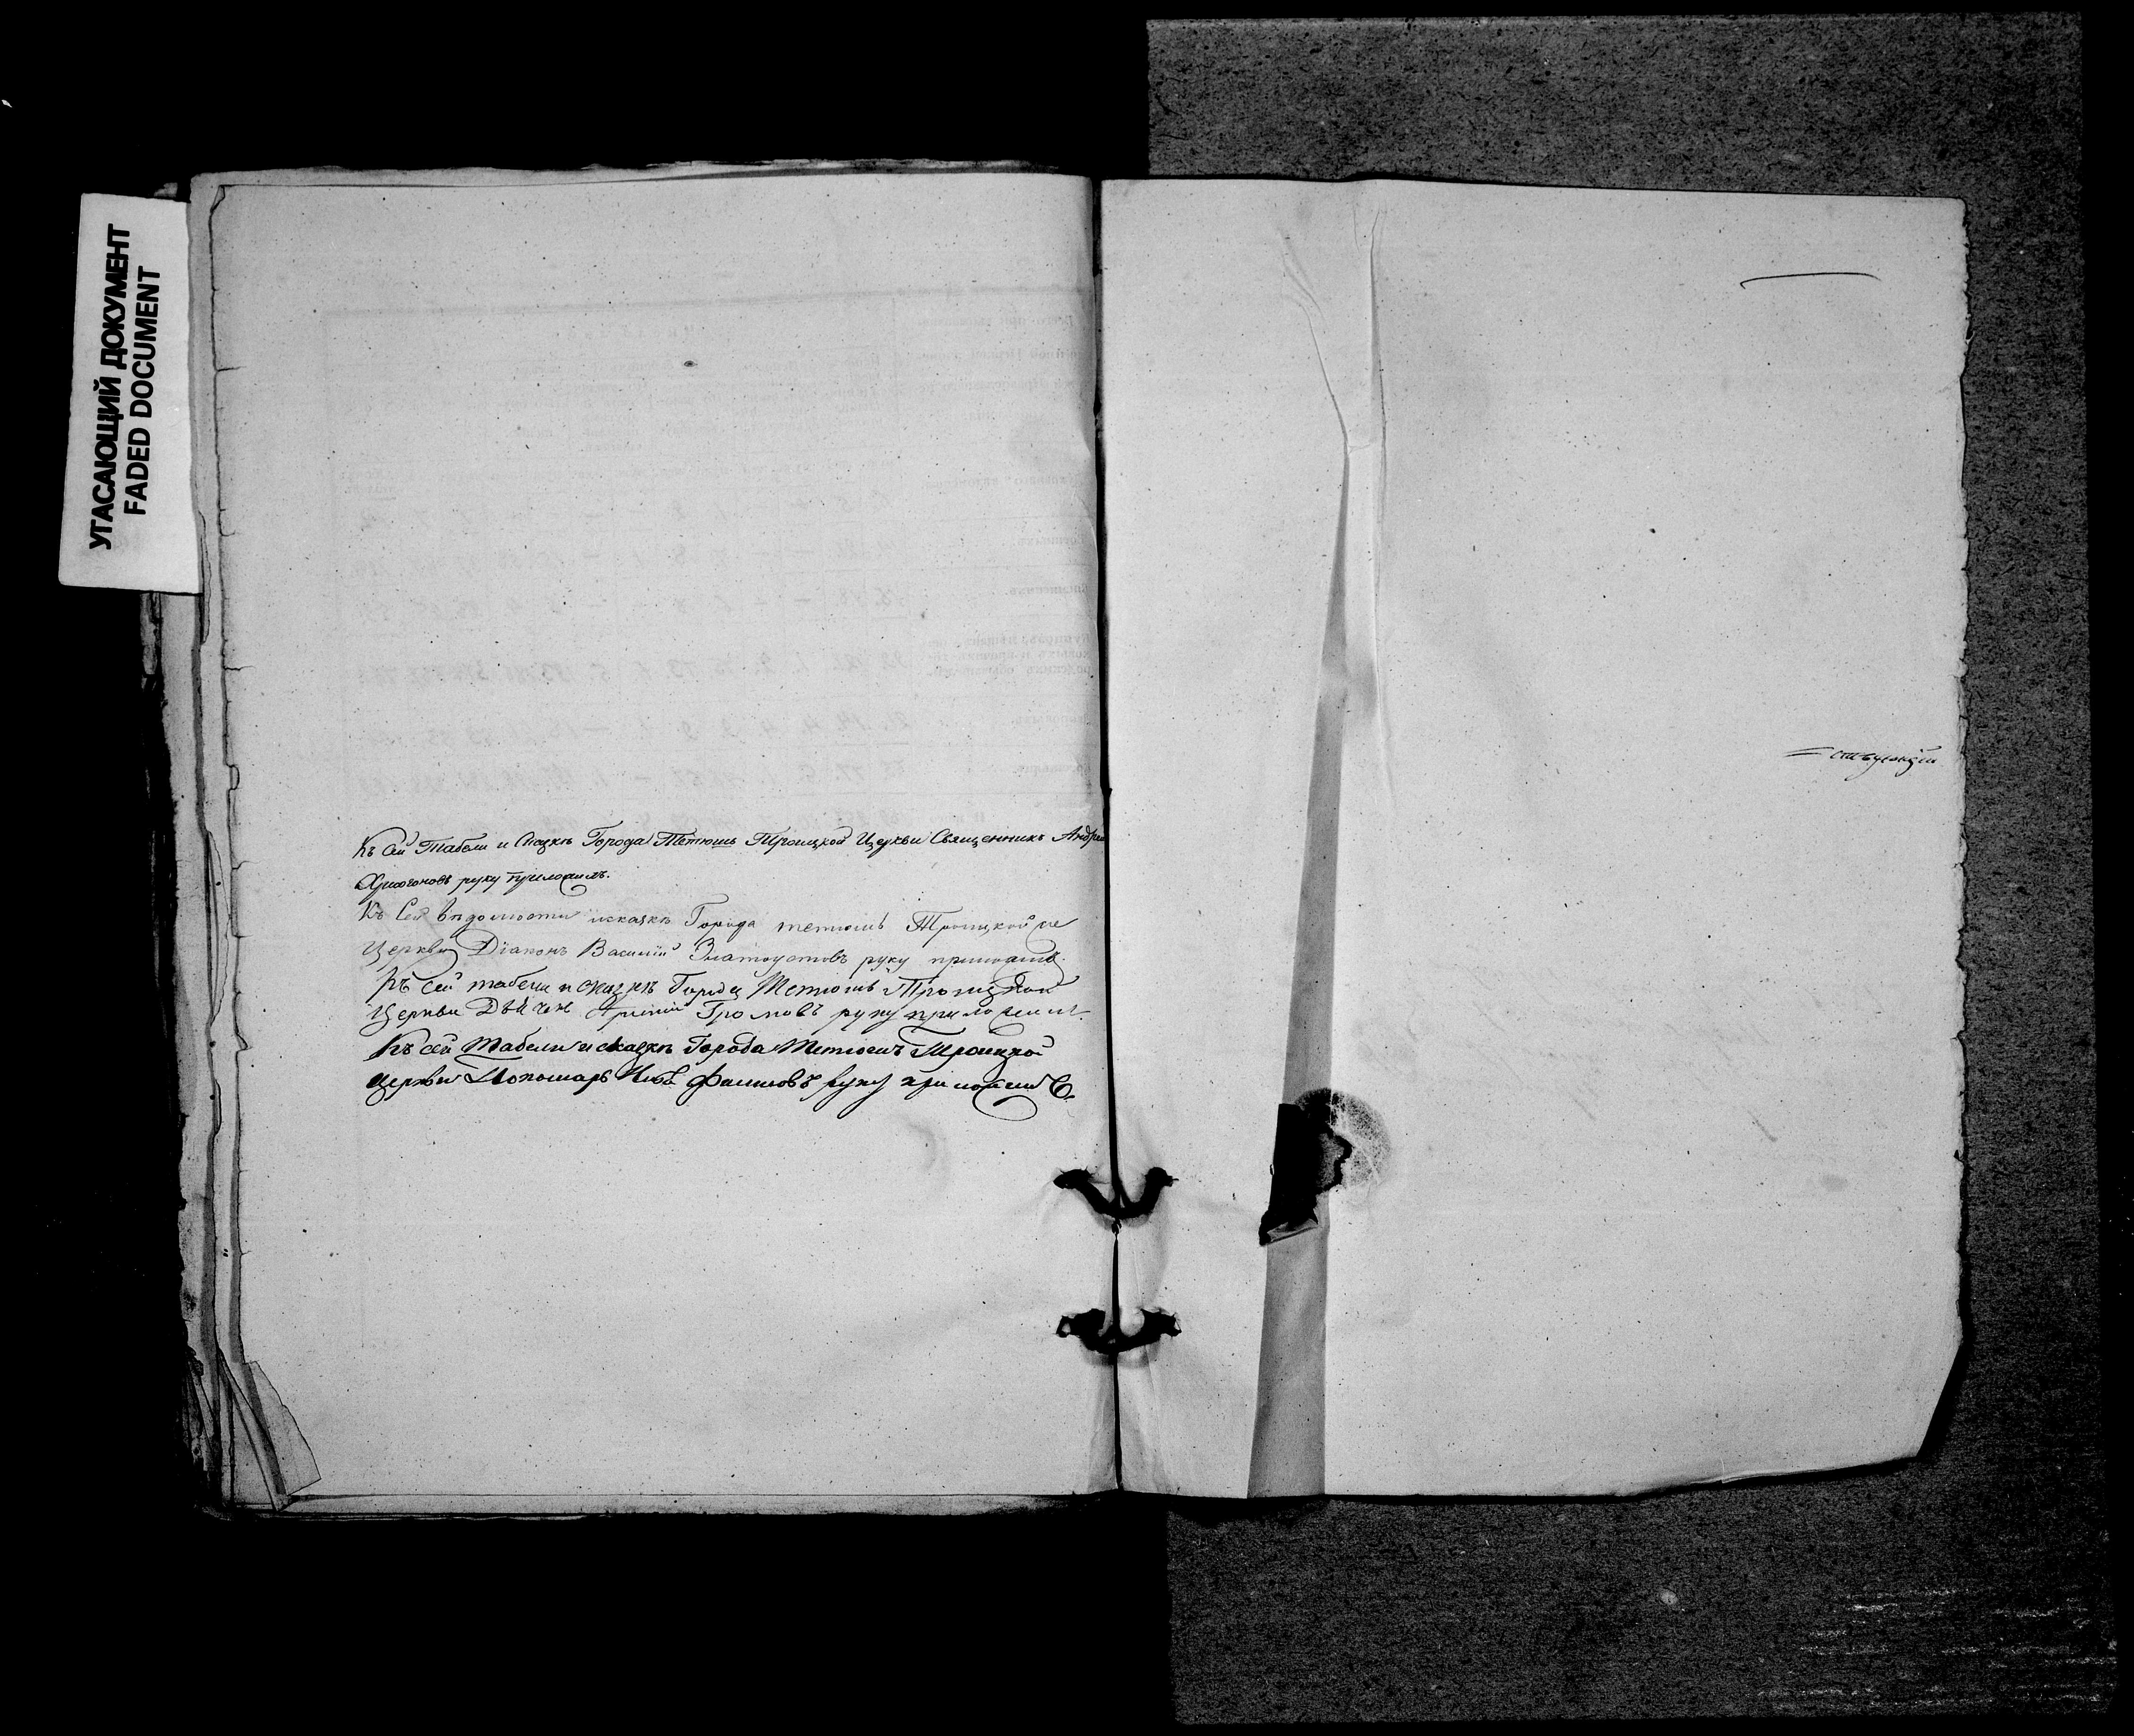 УГАСАЮЩИЙ ДОКУМЕНТ
FADED DOCUMENT
Къ сей Табели и Сказкѣ Города Тетюшь Троицкой Церкви Священникъ Андрей
руку приложилъ.
Къ Сей вѣдомости исказкѣ Города тетюшь Троицкой же
Церкви Дїаконъ Василий Златоустовъ руку приложилъ.
Къ сей табели и сказкѣ Города Тетюшь Троицкой
Церкви Громовъ руку приложилъ.
Къ сей Табели и сказкѣ Города Тетюшъ Троицкой
Церкви Пономарь руку приложилъ